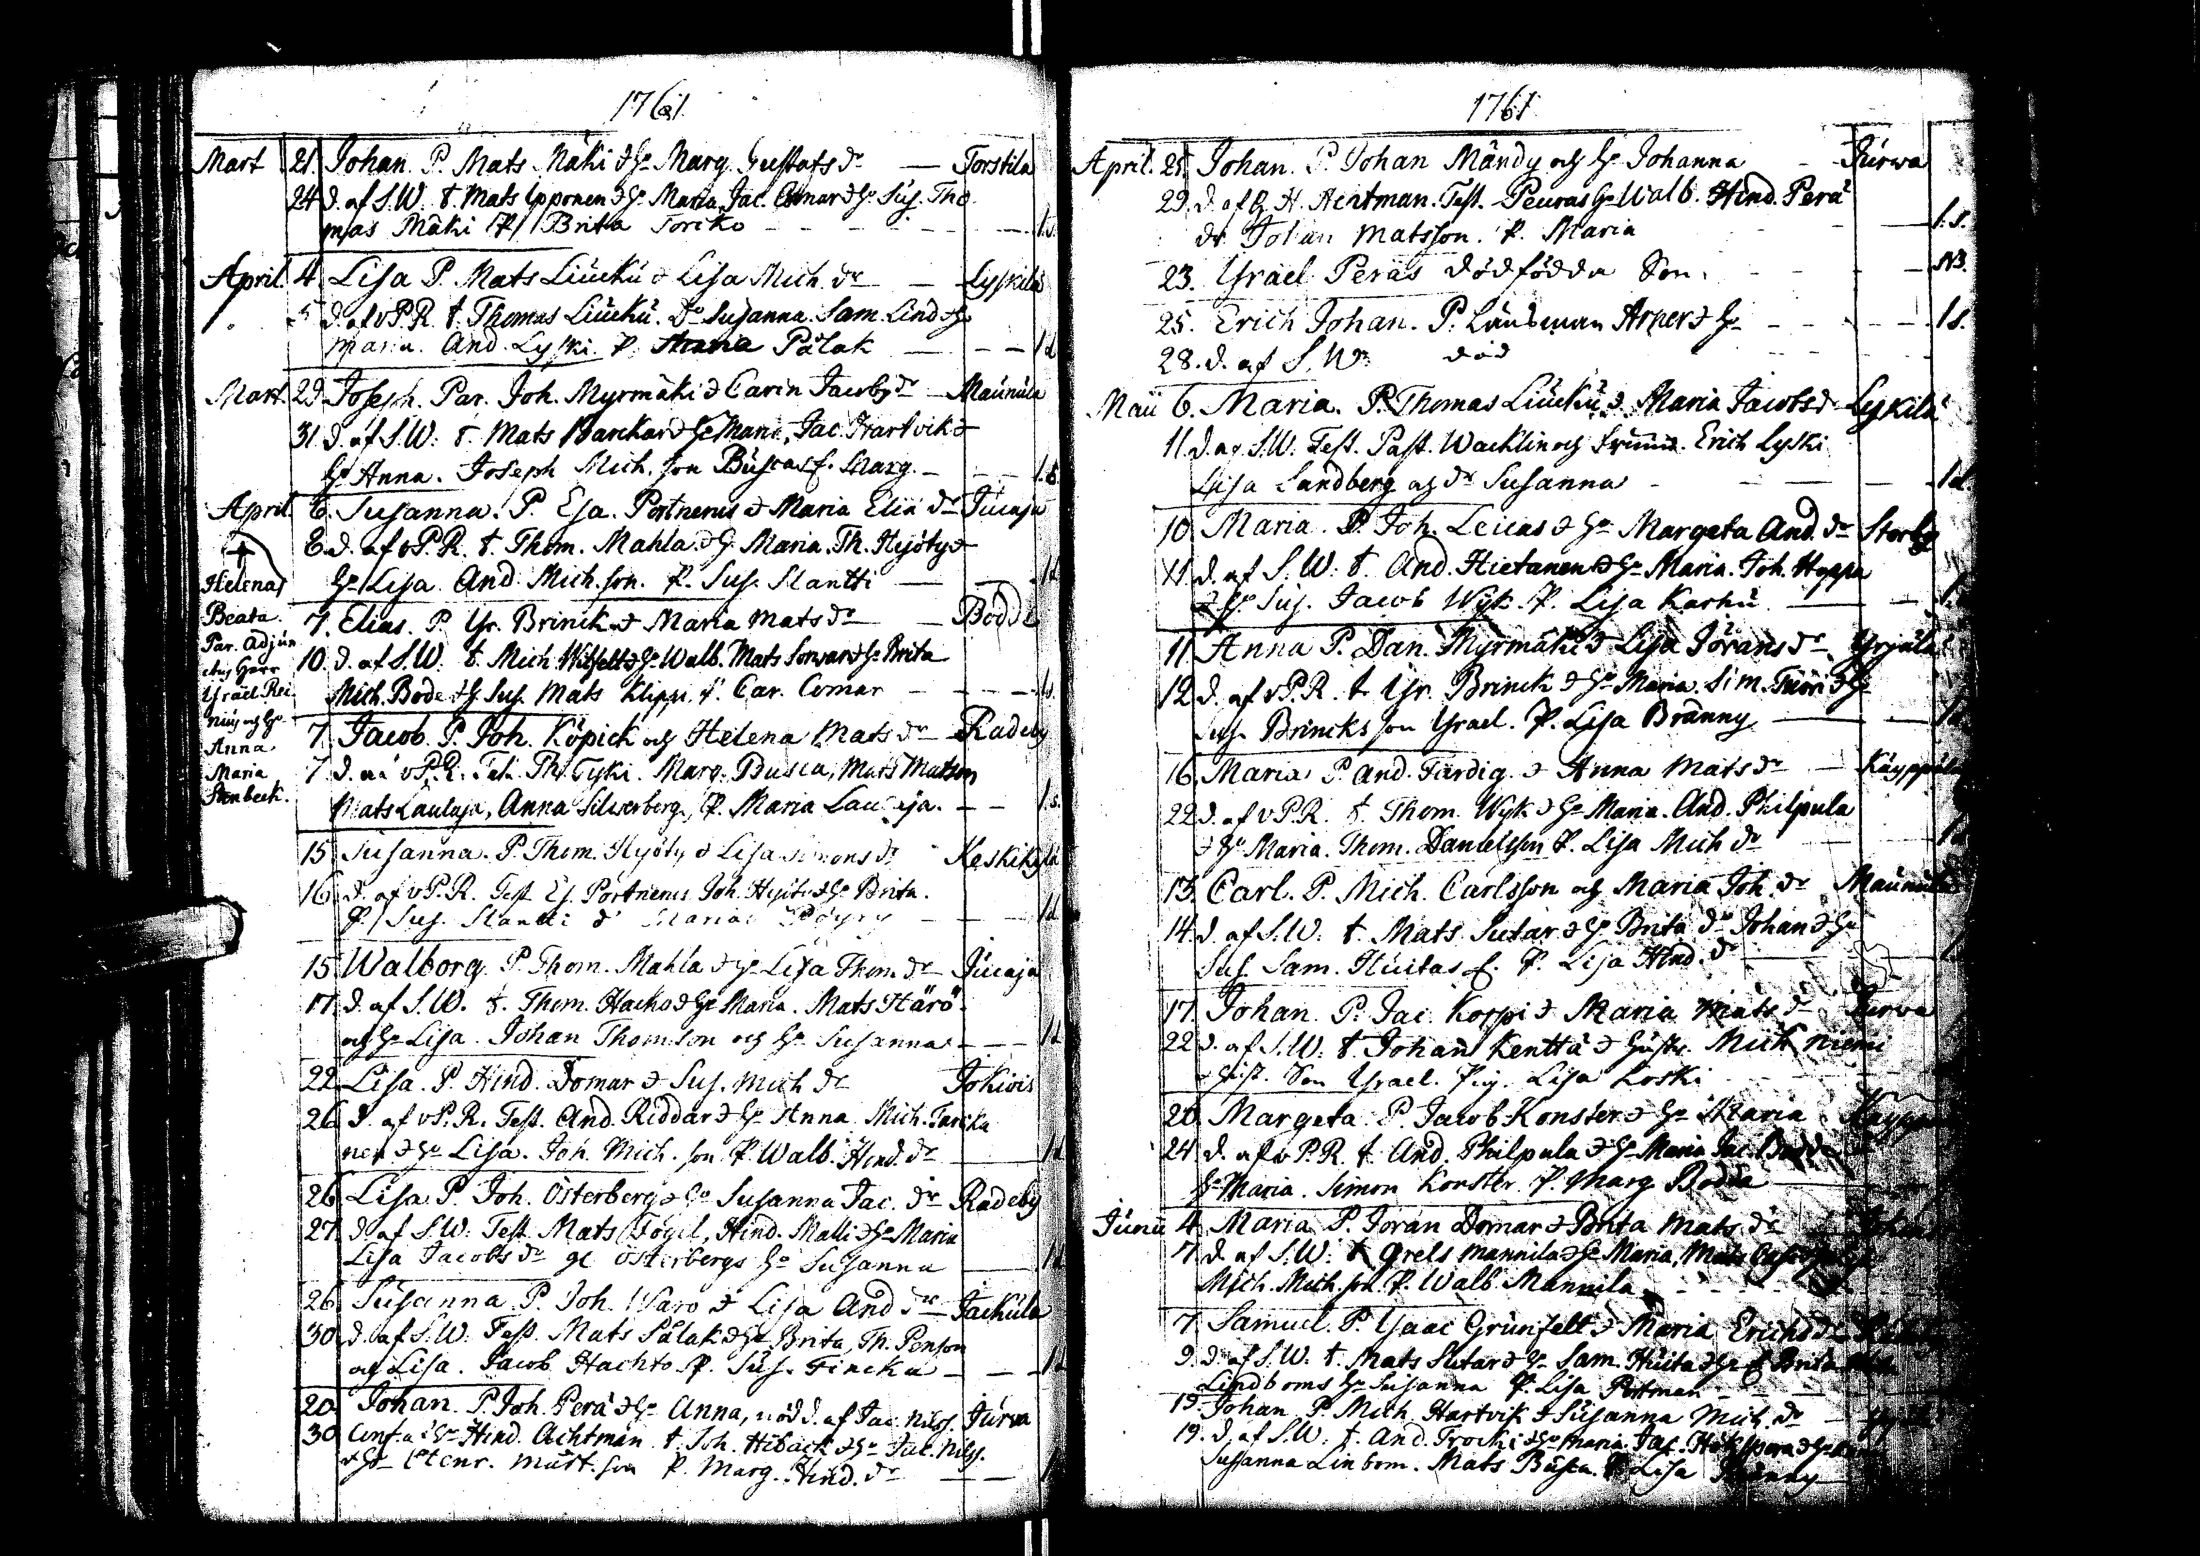 1761
Mart 21. Johan. P. Mats Mäki & Ho Marg. Gustafs dr — Torstila
24 d. af S.W. t. Mats Ipponen & Ho Maria, Jac. Comar & Ho Sus. Tho
mas Mäki P/ Brita Torcko — 1 s.
April. 4. Lisa P. Mats Liucku & Lisa Mich. dr — Lyskilä
5 d. af vP.R. t. Thomas Liucku. Dr Susanna. Sam. Lind & Ho
Maria. And. Lyski P. Maria Pålak — 1 d
Mart. 29. Joseph. Par. Joh. Myrmäki & Carin Jacobs dr — Maunula
31. d. af S.W: t. Mats Barckar & Ho Maria, Jac. Hartvik &
Ho Anna. Joseph Mich. son Buscas f. Marg. — 1 s.
April. 6. Susanna. P. Esa. Portnerus & Maria Eliæ dr — Jucaja
8. d. af vP.R. t. Thom. Mahla. & H. Maria. Th. Hyöty &
Ho Lisa. And. Mich. son. P. Sus. Slantti — 1 d
7. Elias. P. Yr. Brinck & Maria Mats dr — Bodde
10. d. af S.W: t. Mich Witfelt & Ho Walb. Mats Sorvar & Ho Brita
Mich. Bode & H Sus. Mats Klippi. P. Car. Comar — 1 s.
Helena
Beata
Par. Adjun
ctus Herr
Ysrael Rei
nius och Ho
Anna
Maria
Stenbeck.
7. Jacob. P. Joh. Köpick och Helena Mats dr — Radeby
7 d. af vP.R. Test. Th. Tyski. Marg. Busca, Mats Matson
Mats Laulaja, Anna Silwerberg, P. Maria Laulaja. — 1 s.
15 Susanna. P. Thom. Hyöty & Lisa Simons dr Keskikylä
16. d. af vP.R. Test Es. Portnerus Joh. Hyöty & Ho Brita.
P./ Sus. Slantti & Maria — 1 d
15 Walborg. P. Thom. Mahla & Ho Lisa Thom. dr — Jucaja
17. d. af S.W. t. Thom. Hacko & Ho Maria. Mats Härö.
och Ho Lisa. Johan Thom. son och Ho Susanna — 1 d
22. Lisa. P. Hind. Domar & Sus. Mich dr Jokiois
26 d. af vP.R. Test. And. Riddar & Ho Anna. Mich. Tarcka
nen & Ho Lisa. Joh. Mich. son P. Walb. Hind. dr — 1 d
26 Lisa P. Joh. Österberg & Ho Susanna Jac. dr — Radeby
27. d. af S.W: Test. Mats Fogel, Hind. Malli & Ho Maria
Lisa Jacobs dr Österbergs Ho Susanna — 1 d
26. Susanna P. Joh. Waro & Lisa And dr — Jackula
30 d. af S.W: Test. Mats Pålak & Ho Brita, Th. Penson
och Lisa. Jacob Hachto P. Sus. Fincku — 1 d
20 Johan. P. Joh. Perä & Ho Anna, nödd. af Jac. Nilss. Jurva
30 Conf. a Ho Hind. Achtman. t. Joh. Hiback & Ho Jac. Nilss.
& Ho Henr. Mårt. son P. Marg. Hind. dr —
1761
April. 25. Johan. P. Johan Mändy och Ho Johanna — Jurwa
29. d. af H. Hertman. Test. Peuras Ho Walb. Hind. Perä
dr Johan Matsson. P. Maria — 1. s.
23. Ysrael Peräs dödfödda Son — NB.
25. Erich Johan. P. Länsman Arper & Ho — 1 s.
28. d. af S.W: död
Maii 6. Maria. P. Thomas Liucku & Maria Jacobs dr — Lyskilä
11. d. af S.W. Test. Past. Wacklin och fruun. Erich Lyski
Lisa Sandberg och dr Susanna — 1 d
10. Maria. P. Joh. Leucas & Ho Margeta And. dr — Storby
11. d. af S.W: t. And. Hietanen & Ho Maria. Joh. Hoppa
& Ho Sus. Jacob Wyk. P. Lisa Karhu —
11. Anna P. Dan. Myrmäki & Lisa Jörans dr Yrjälä
12. d. af vP.R. t. Yr. Brinck & Ho Maria. Sim. Tuori & Ho
Sus. Brincks son Ysrael. P. Lisa Bränny — 1 d
16 Maria P. And. Färdig. & Anna Mats dr — Käyppälä
22 d. af vP.R. t. Thom. Wyk & Ho Maria. And. Philpula
& Ho Maria. Thom. Danielsson P. Lisa Mich dr — 1 d
13. Carl. P. Mich. Carlsson och Maria Joh. dr Maunula
14. d. af S.W: t. Mats Sutar & Ho Brita dr Johan & Ho
Sus. Sam. Huitas f. P. Lisa Hind. dr
17. Johan. P. Jac. Koppi & Maria Mats dr Jurwa
22. d. af S.W: t. Johan Kenttä & Hustr. Mich. Niemi
Son Ysrael. Pig. Lisa Koski
20. Margeta. P. Jacob Konster & Ho Maria
24 d. af vP.R. t. And. Philpula & Ho Maria Jac. Bodde
Ho Maria. Simon Konster. P. Marg Bodda
Junii 4. Maria P. Joran Domar & Brita Mats dr
7. d. af S.W: t. Grels Mannila & Ho Maria, Mats
Mich. Mich. son P. Walb. Mannila
7. Samuel. P. Ysaac Grunfelt & Maria Erichs dr
9. d. af S.W. t. Mats Sutar & Ho Sam. Huita & Ho Brita
Lindboms Ho Susanna P. Lisa Portman
15. Johan P. Mich. Hartvik & Susanna Mich. dr —
19. d. af S.W: t. And. Trocki & Ho Maria. Jac.
Susanna Linbom. Mats Busca. P. Lisa Bränny